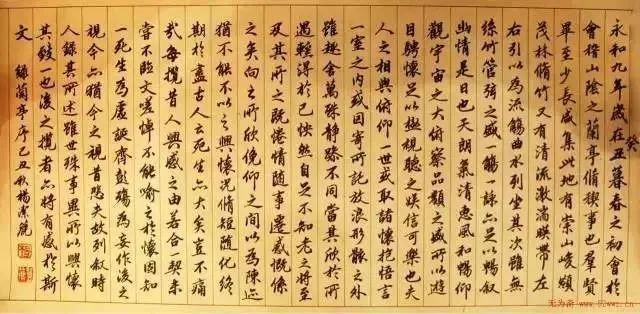 永和九年歲在癸丑暮春之初會於
會稽山陰之蘭亭脩禊事也群賢
畢至少長咸集此地有崇山峻領
茂林脩竹又有清流激湍暎帶左
右引以為流觴曲水列坐其次雖無
絲竹管弦之盛一觴一詠亦足以暢敘
幽情是日也天朗氣清惠風和暢仰
觀宇宙之大俯察品類之盛所以遊
目騁懷足以極視聽之娛信可樂也夫
人之相與俯仰一世或取諸懷抱悟言
一室之內或因寄所託放浪形骸之外
雖趣舍萬殊靜躁不同當其欣於所
遇輒得於己怏然自足不知老之將至
及其所之既惓情隨事遷感慨係
之矣向之所欣俛仰之間以為陳迹
猶不能不以之興懷況脩短隨化終
期於盡古人云死生亦大矣豈不痛
哉每攬昔人興感之由若合一契未
嘗不臨文嗟悼不能喻之於懷固知
一死生為虛誕齊彭殤為妄作後之
視今亦猶今之視昔悲夫故列敘時
人錄其所述雖世殊事異所以興懷
其致一也後之攬者亦將有感於斯
文 錄蘭亭序己丑秋楊潔